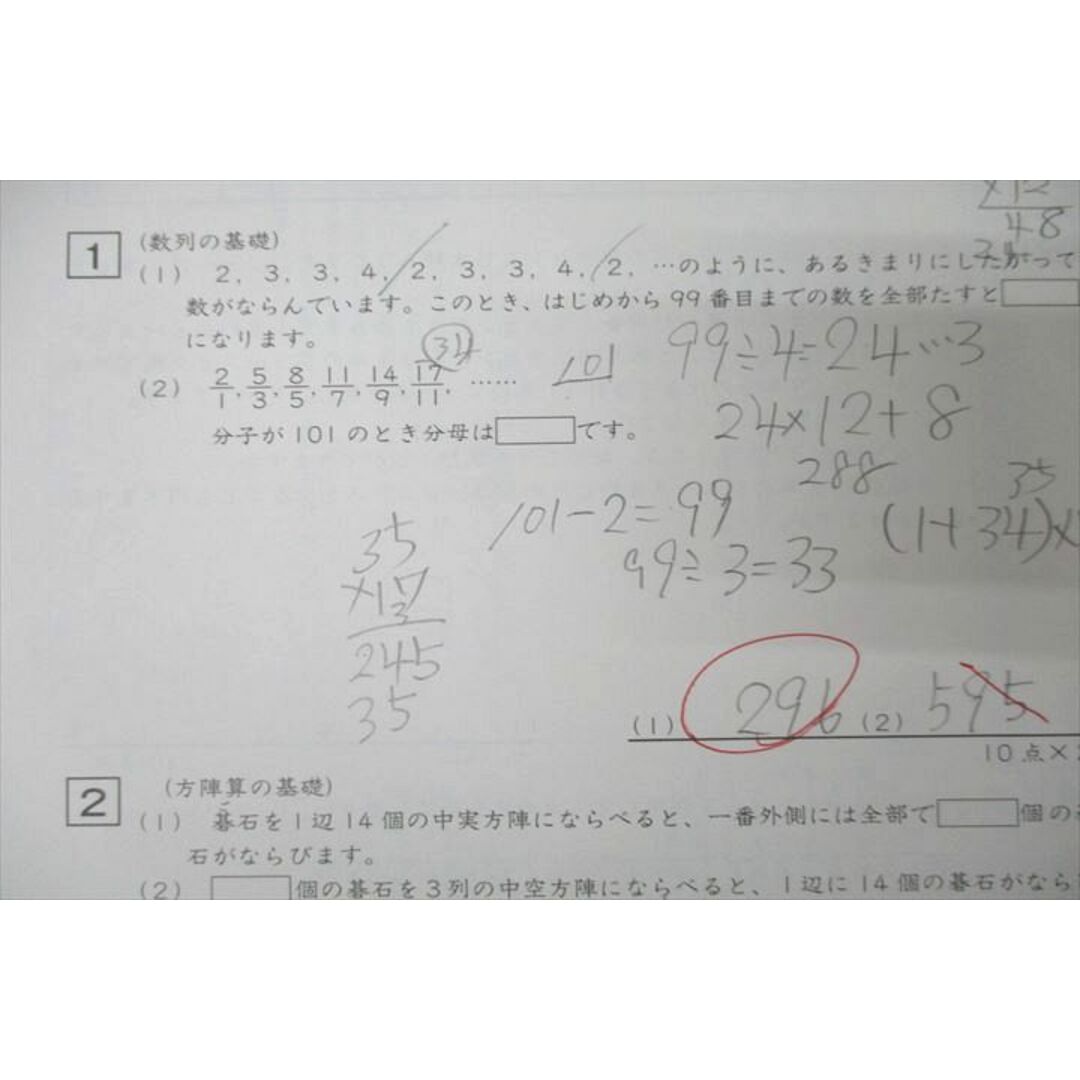 ×12
48
1 (数列の基礎)
(1) 2, 3, 3, 4, 2, 3, 3, 4, 2, …のように、あるきまりにしたがって
数がならんでいます。このとき、はじめから99番目までの数を全部たすと
になります。
34
99÷4=24…3
(2) 2/1, 5/3, 8/5, 11/7, 14/9, 17/11, ……
101
24×12+8
分子が101のとき分母は です。
288
35
101-2=99
(1+34)×
99÷3=33
35
×17
245
35
(1) 296 (2) 595
10点×
2 (方陣算の基礎)
(1) 碁石を1辺14個の中実方陣にならべると、一番外側には全部で 個の
石がならびます。
(2) 個の碁石を3列の中空方陣にならべると、1辺に14個の碁石がなら